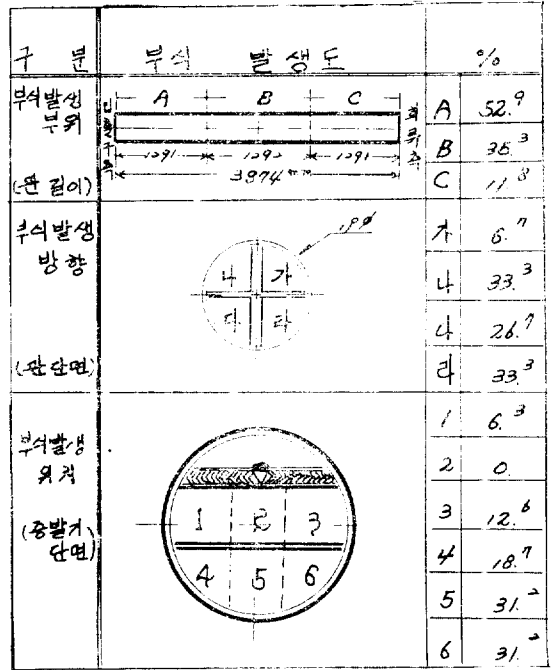 구 분 부식 발생도 %
부식발생 부위 (관 길이)
A B C
입출구측 회류측
1291 1292 1291
3874 mm
A 52.9
B 35.3
C 11.8
부식발생 방향 (관단면)
19φ
나 가
다 라
가 6.7
나 33.3
나 26.7
라 33.3
부식발생 위치 (증발기 단면)
1 2 3
4 5 6
1 6.3
2 0
3 12.6
4 18.7
5 31.2
6 31.2